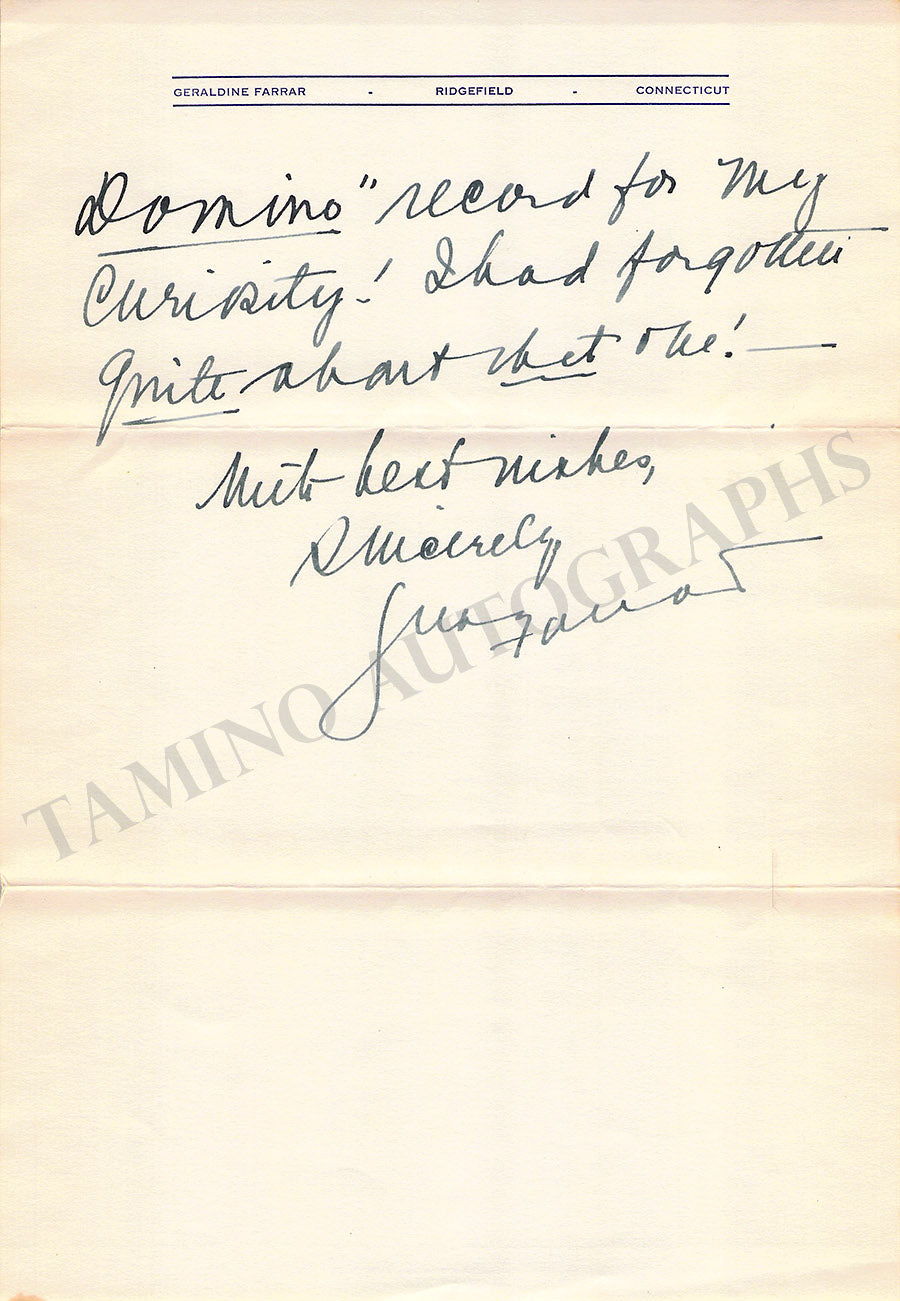 GERALDINE FARRAR - RIDGEFIELD - CONNECTICUT
Domino" record for my
Curiosity! I had forgotten
quite about that one! —
With best wishes,
Sincerely,
Farrar
TAMINO AUTOGRAPHS